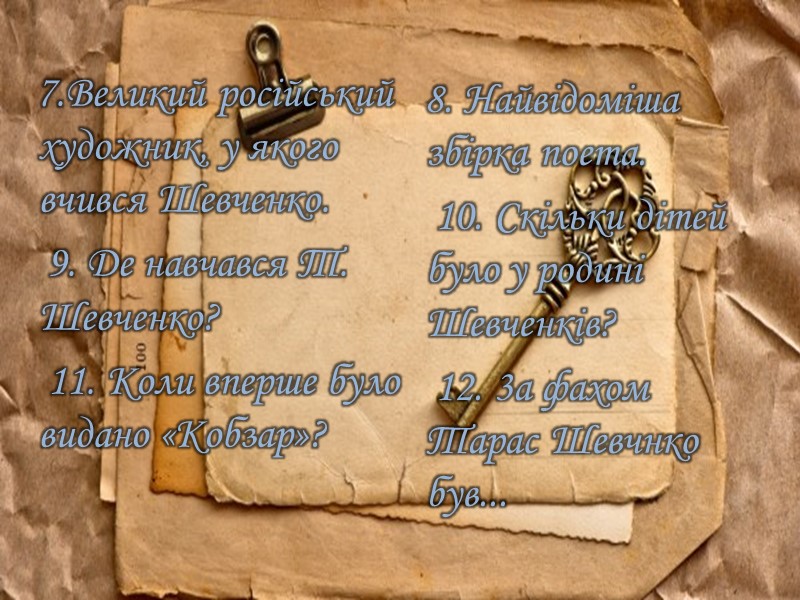 7.Великий російський
художник, у якого
вчився Шевченко.
9. Де навчався Т.
Шевченко?
11. Коли вперше було
видано «Кобзар»?
8. Найвідоміша
збірка поета.
10. Скільки дітей
було у родині
Шевченків?
12. За фахом
Тарас Шевчнко
був...
100